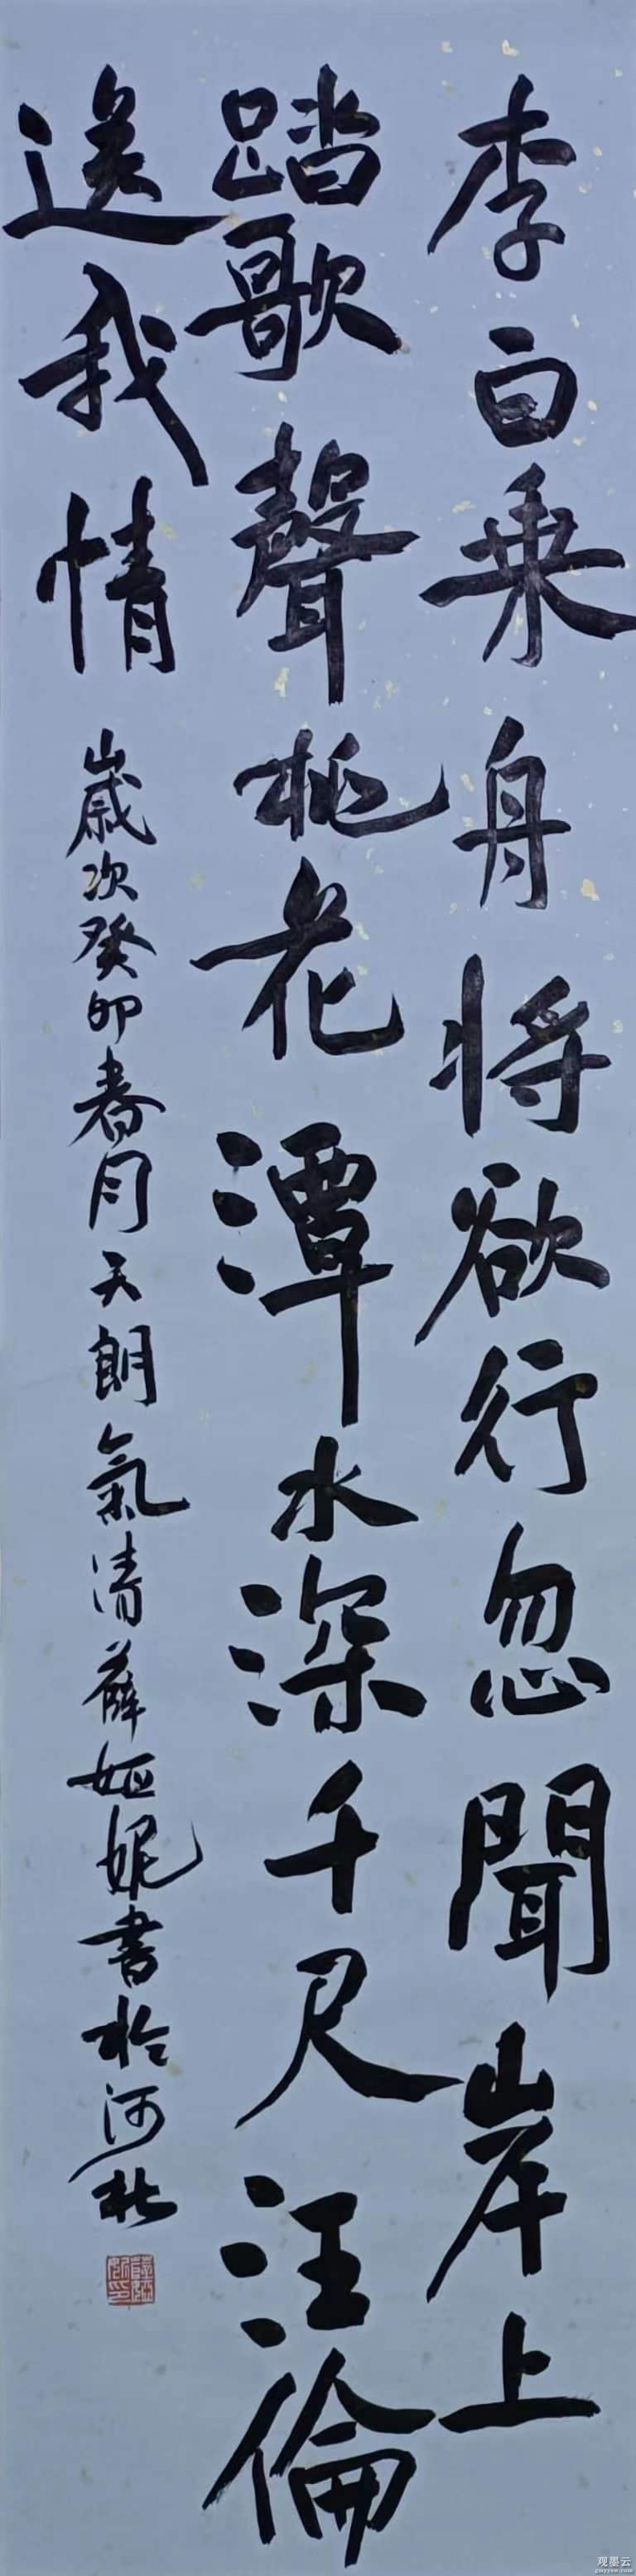 李白乘舟将欲行忽聞岸上
踏歌聲桃花潭水深千尺汪倫
送我情
歲次癸卯春月天朗氣清薛婭妮書於河北
观墨云